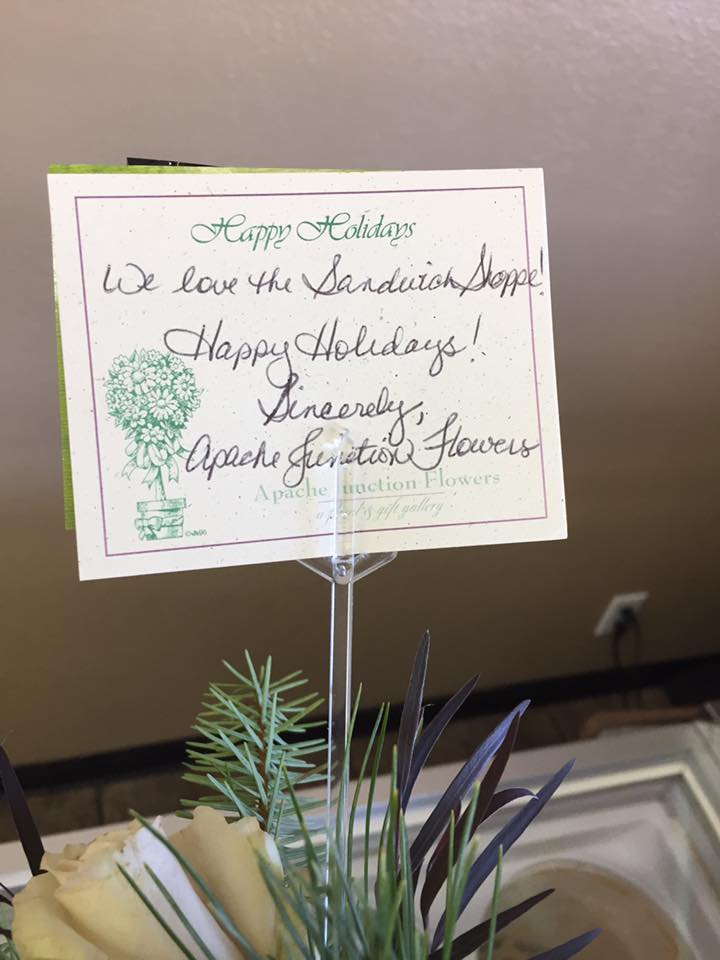 Happy Holidays
We love the Sandwich Shoppe!
Happy Holidays!
Sincerely,
Apache Junction Flowers
Apache Junction Flowers
a floral & gift gallery